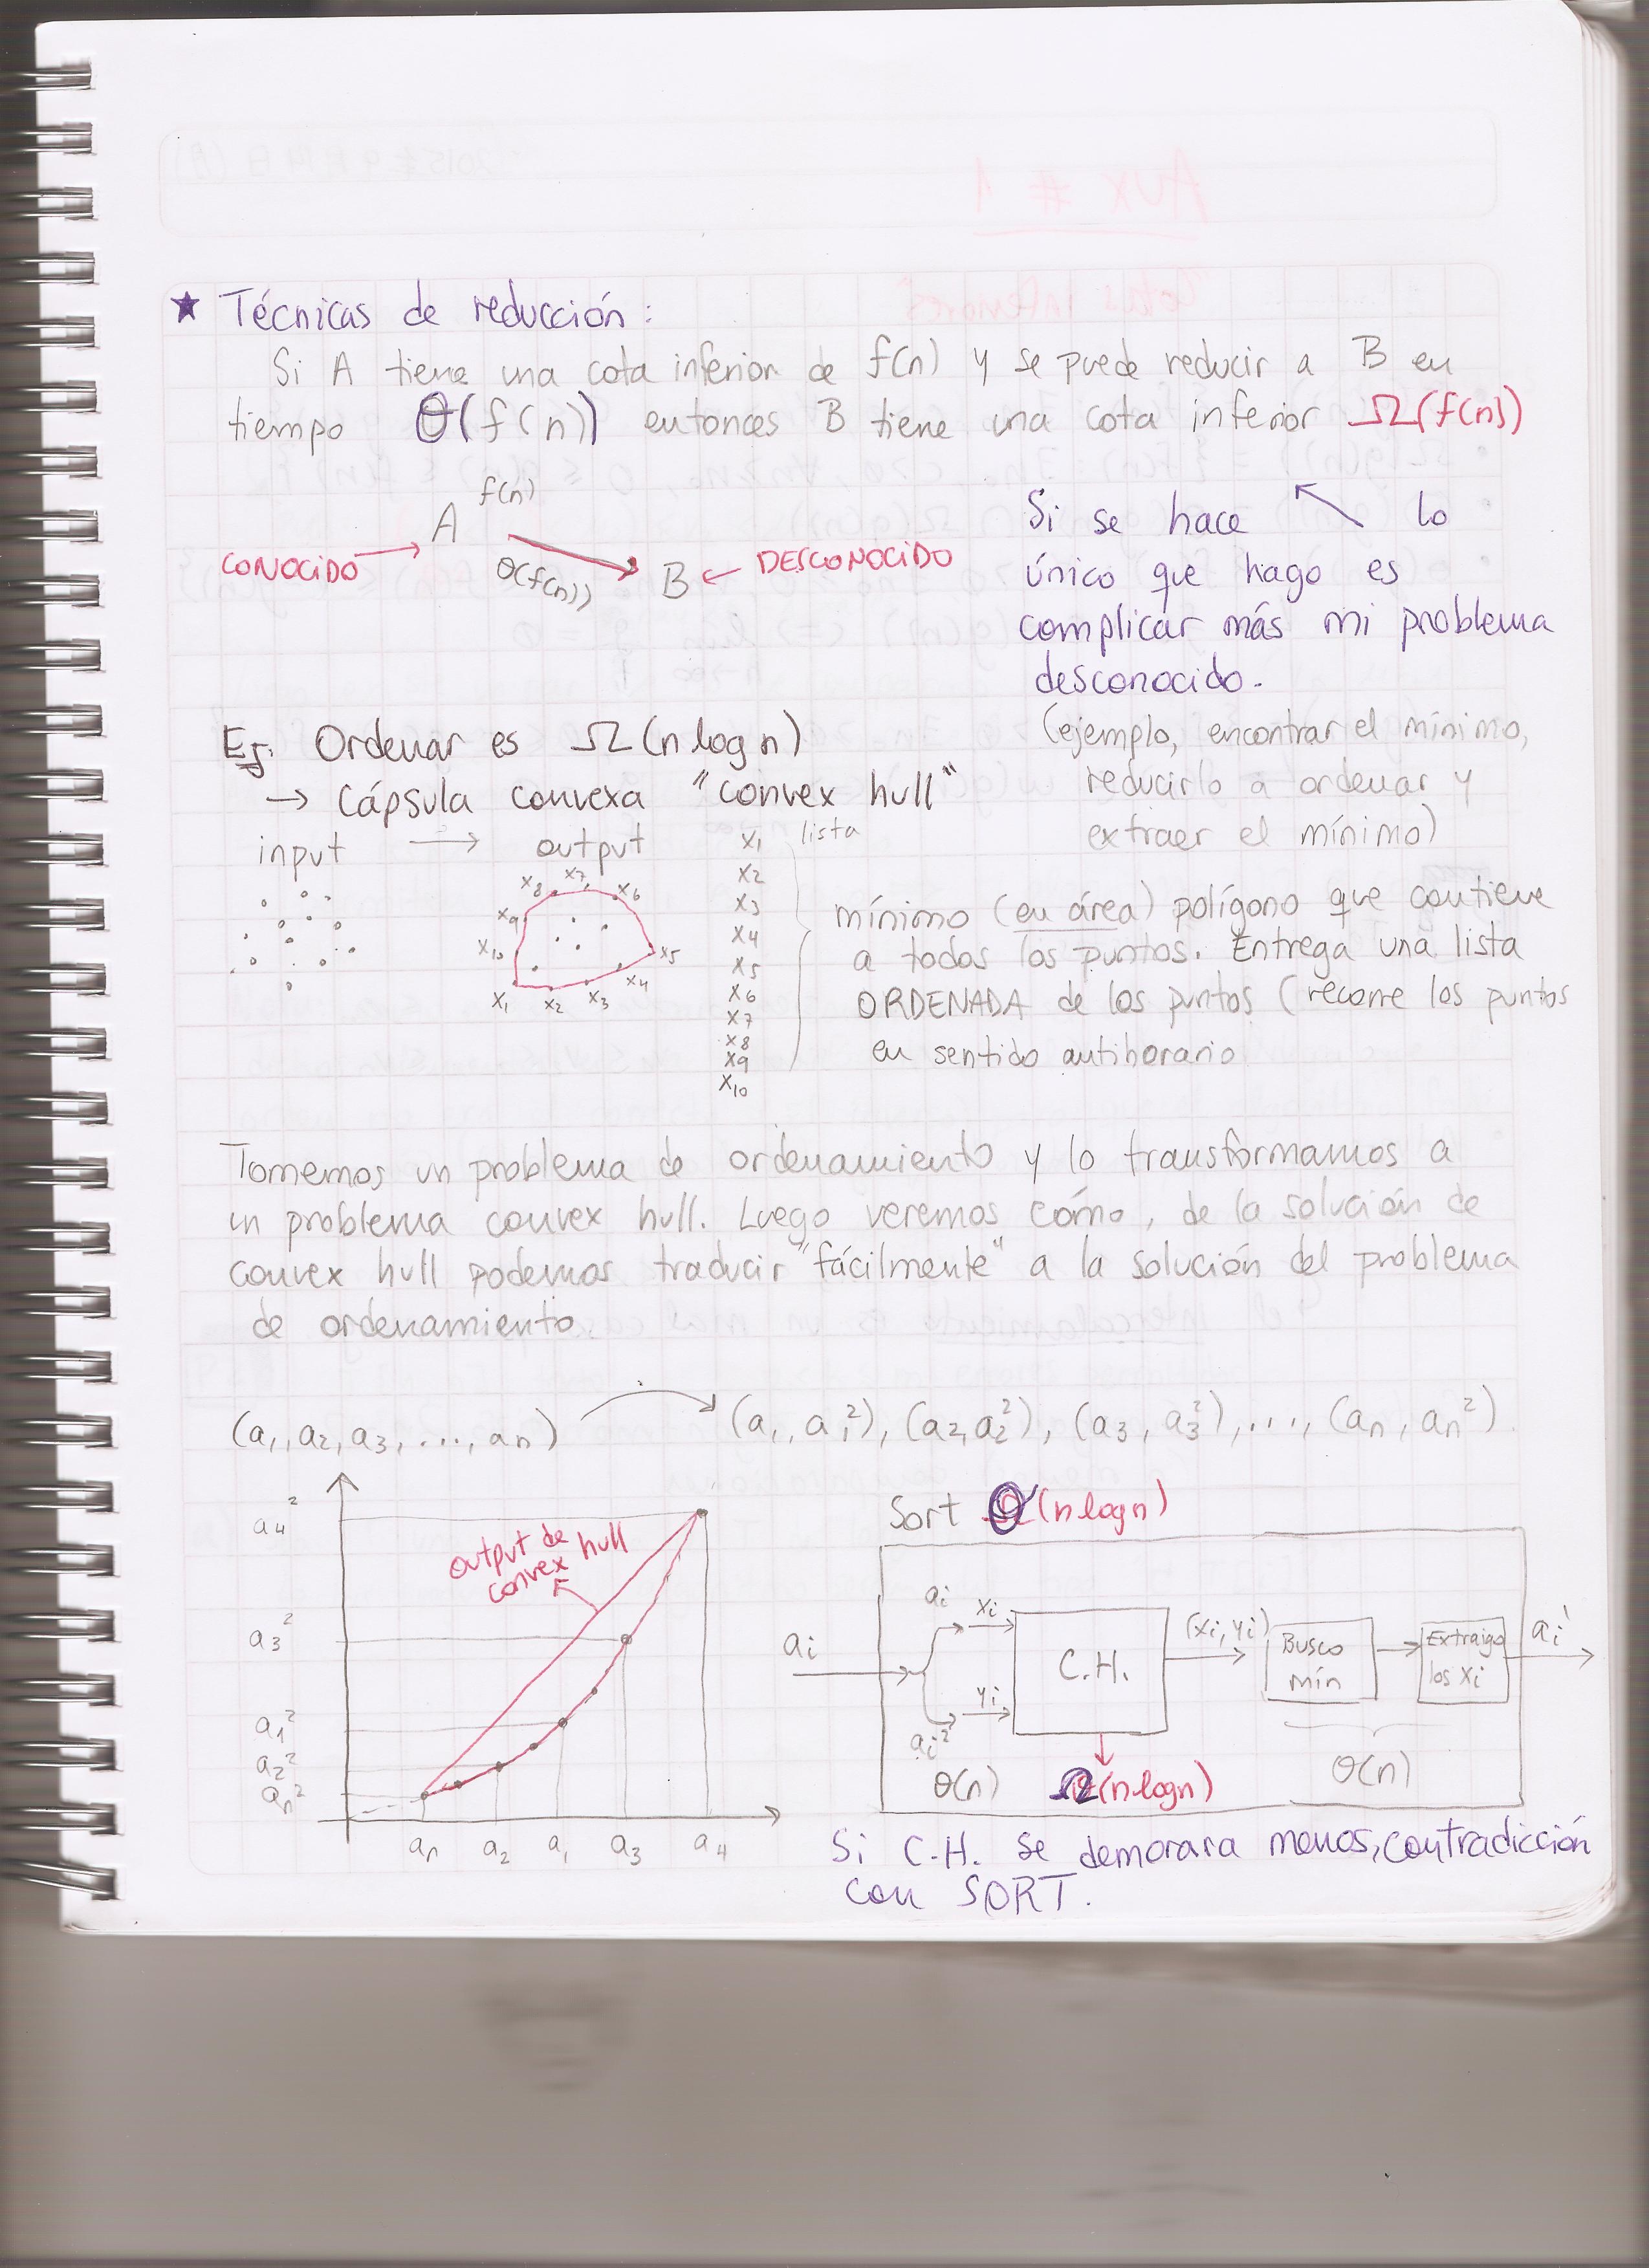 ★ Técnicas de reducción:
Si A tiene una cota inferior de f(n) y se puede reducir a B en
tiempo Θ(f(n)) entonces B tiene una cota inferior Ω(f(n))
f(n)
A
CONOCIDO →
Θ(f(n))
B ← DESCONOCIDO
Si se hace ↖ lo
único que hago es
complicar más mi problema
desconocido.
(ejemplo, encontrar el mínimo,
reducirlo a ordenar y
extraer el mínimo)
Ej. Ordenar es Ω(n log n)
→ Cápsula convexa "convex hull"
input → output
x1 x2 x3 x4 x5 x6 x7 x8 x9 x10
lista
x1
x2
x3
x4
x5
x6
x7
x8
x9
x10
mínimo (en área) polígono que contiene
a todos los puntos. Entrega una lista
ORDENADA de los puntos (recorre los puntos
en sentido antihorario
Tomemos un problema de ordenamiento y lo transformamos a
un problema convex hull. Luego veremos cómo, de la solución de
convex hull podemos traducir "fácilmente" a la solución del problema
de ordenamiento.
(a1, a2, a3, ..., an) → (a1, a1²), (a2, a2²), (a3, a3²), ..., (an, an²).
a4²
a3²
a1²
a2²
an²
output de
convex hull
an a2 a1 a3 a4
Sort Θ(n log n)
ai
ai xi
yi
ai²
C.H.
(xi, yi)
Busco
mín
Extraigo
los xi
ai'
Θ(n)
Ω(n log n)
Θ(n)
Si C.H. se demorara menos, contradicción
con SORT.